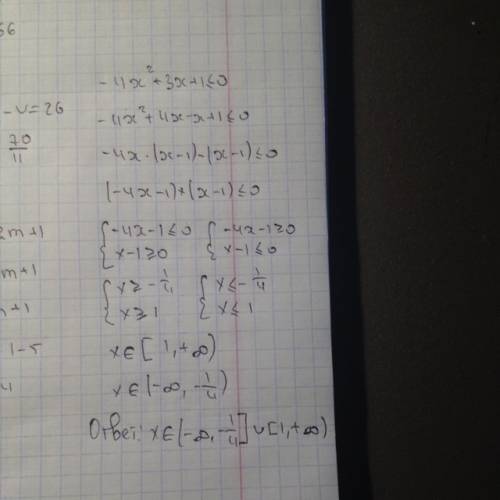 56
-4x² + 3x + 1 ≤ 0
- v = 26
-4x² + 4x - x + 1 ≤ 0
70/11
-4x · (x - 1) - (x - 1) ≤ 0
(-4x - 1) * (x - 1) ≤ 0
2m + 1
{ -4x - 1 ≤ 0 { -4x - 1 ≥ 0
{ x - 1 ≥ 0 { x - 1 ≤ 0
m + 1
{ x ≥ -1/4 { x ≤ -1/4
{ x ≥ 1 { x ≤ 1
+ 1
1 - 5
x ∈ [1, +∞)
4
x ∈ (-∞, -1/4)
Ответ: x ∈ (-∞, -1/4] ∪ [1, +∞)